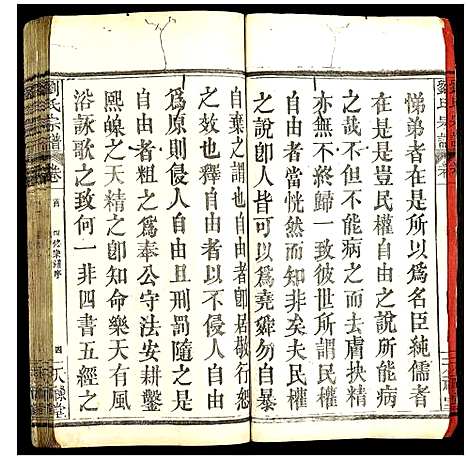 劉氏宗譜
卷
悌弟者在是所以為名臣純儒者
在是豈民權自由之說所能病
之哉不但不能病之而膚抉精
亦無不終歸一致現在倡民權
自由者當恍然非矣夫民權
之說卽人皆可以為堯舜勿自暴
自棄之謂也自由者卽居敬行恕
之效也釋自由者曰自由以法
為原則侵人自由且刑罰隨之是
自由者粗之為奉公守法安耕鑿
熙皞之天精之卽知命樂天有風
浴詠歌之致何一非四書五經之
劉氏宗譜
卷
首
四
八
堂